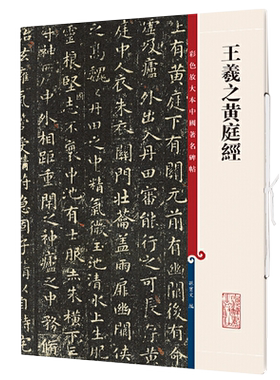 王羲之黄庭經
彩色放大本中國著名碑帖
孫寶文 編
上有黄庭下有關元前有
嘘吸廬外出入丹田審能行之可長
庭中人衣朱衣關門壯籥蓋兩扉幽闕
丹田之中精氣微玉池清水上生
靈根堅志不衰中池有士服赤朱横下三
中外相距重閉之神廬之中務脩